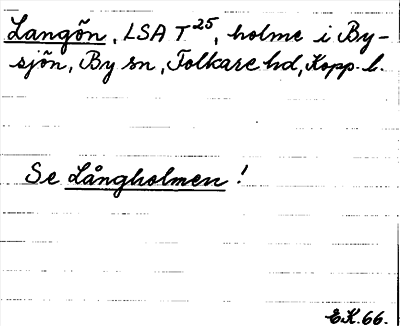 Langön, LSA T²⁵, holme i By-
sjön, By sn, Folkare hd, Kopp. l.
Se Långholmen!
E.K. 66.